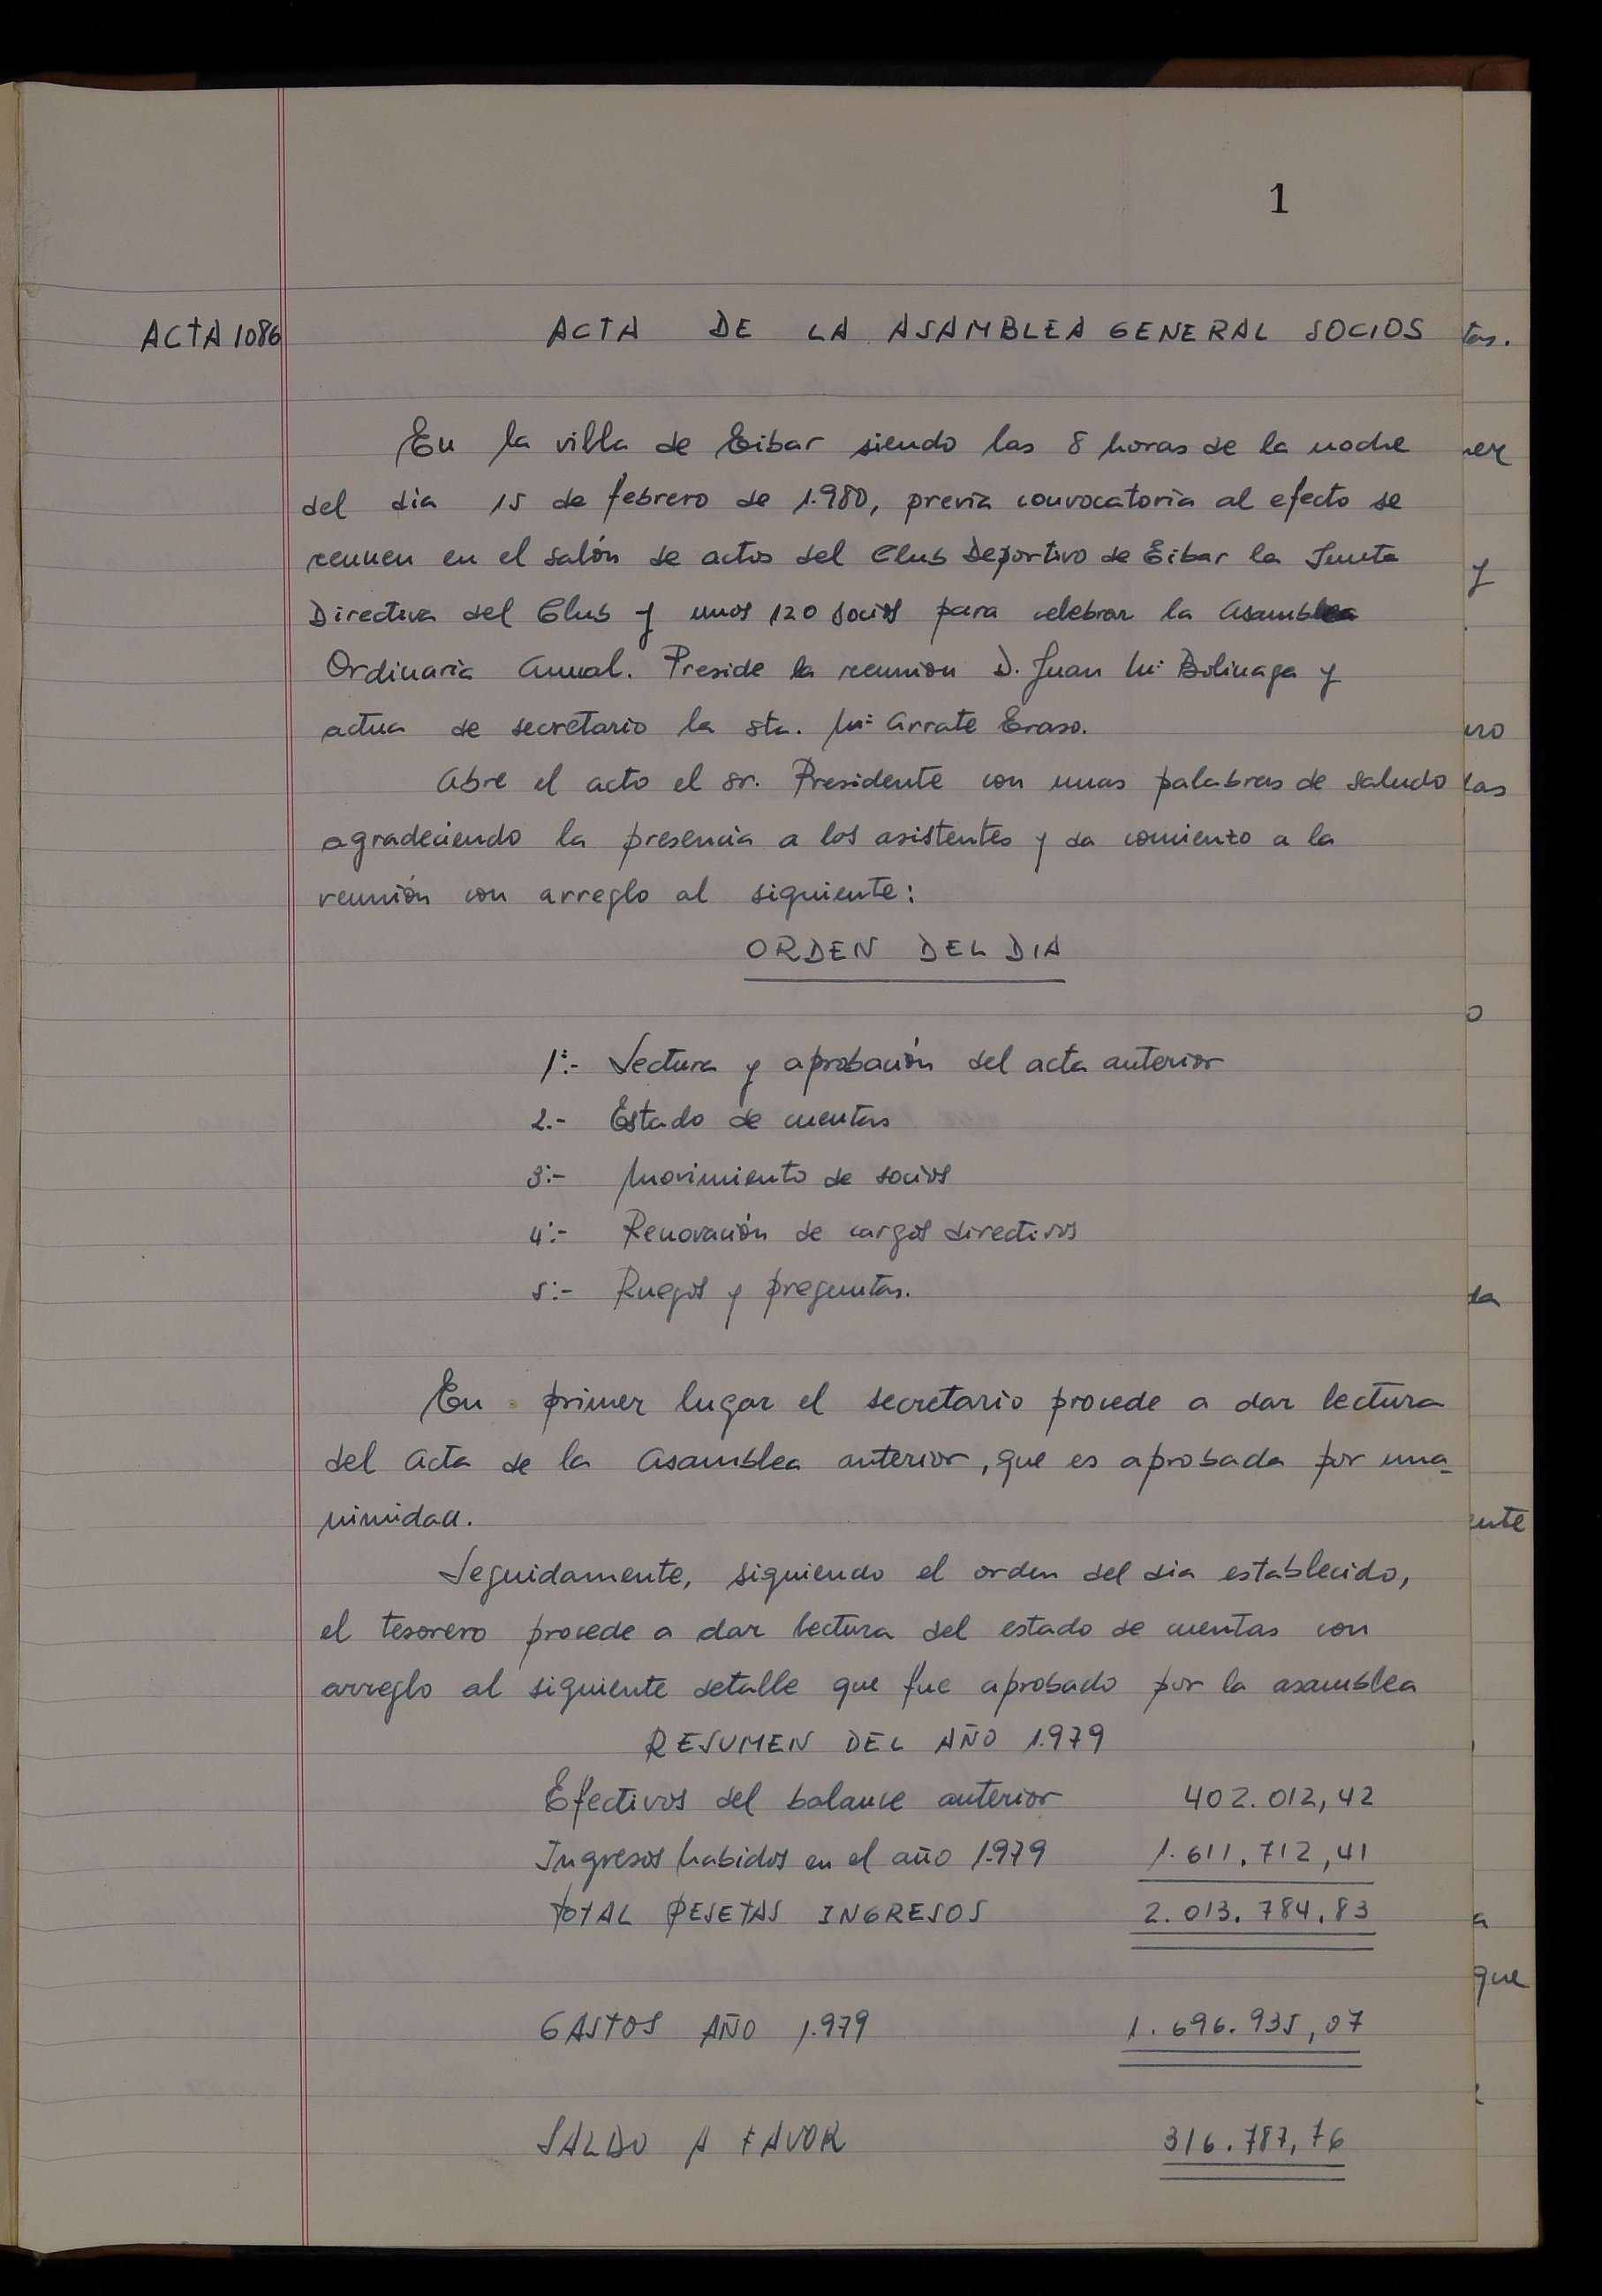 1
ACTA 1086 ACTA DE LA ASAMBLEA GENERAL SOCIOS
En la villa de Eibar siendo las 8 horas de la noche
del dia 15 de febrero de 1.980, previa convocatoria al efecto se
reunen en el salón de actos del Club Deportivo de Eibar la Junta
Directiva del Club y unos 120 socios para celebrar la Asamblea
Ordinaria Anual. Preside la reunion D. Juan Mª Bolinaga y
actua de secretario la sta. Mª Arrate Eraso.
Abre el acto el sr. Presidente con unas palabras de saludo
agradeciendo la presencia a los asistentes y da comienzo a la
reunión con arreglo al siguiente:
ORDEN DEL DIA
1º:- Lectura y aprobación del acta anterior
2.- Estado de cuentas
3:- Movimiento de socios
4:- Renovación de cargos directivos
5:- Ruegos y preguntas.
En primer lugar el secretario procede a dar lectura
del Acta de la Asamblea anterior, que es aprobada por una-
nimidad.
Seguidamente, siguiendo el orden del dia establecido,
el tesorero procede a dar lectura del estado de cuentas con
arreglo al siguiente detalle que fue aprobado por la asamblea
RESUMEN DEL AÑO 1.979
Efectivos del balance anterior 402.012,42
Ingresos habidos en el año 1.979 1.611.712,41
TOTAL PESETAS INGRESOS 2.013.784.83
GASTOS AÑO 1.979 1.696.935,07
SALDO A FAVOR 316.787,76